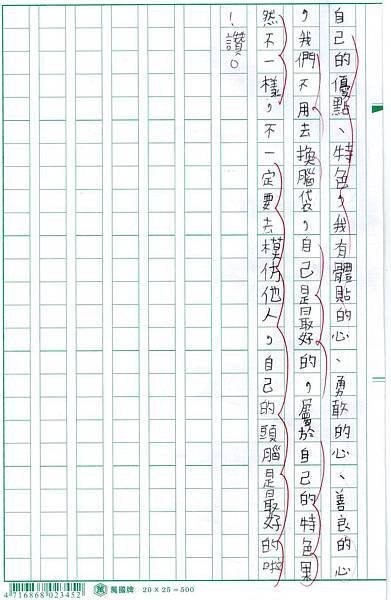 自己的優點、特色，我有體貼的心、勇敢的心、善良的心
，我們不用去換腦袋，自己是最好的，屬於自己的特色果
然不一樣，不一定要去模仿他人，自己的頭腦是最好的啦
！讚。
4 716868 023452
萬國牌 20 X 25 = 500